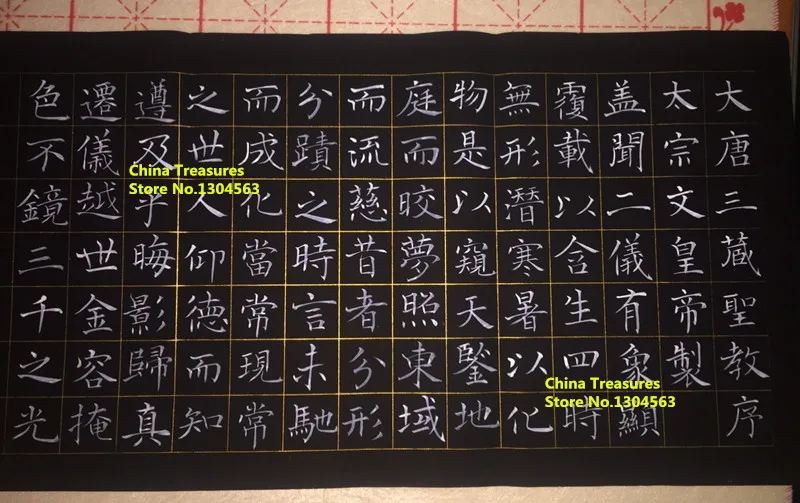 大唐三藏聖教序
太宗文皇帝製
盖聞二儀有象顯
覆載以含生四時
無形潛寒暑以化
物是以窺天鑒地
庭而晈夢照東域
而流慈昔者分形
分蹟之時言未馳
而成化當常現常
之世人仰德而知
遵及乎晦影歸真
遷儀越世金容掩
色不鏡三千之光
China Treasures
Store No.1304563
China Treasures
Store No.1304563